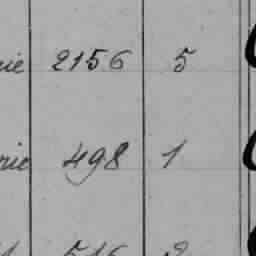 nie 2156 5
nie 498 1
516 2